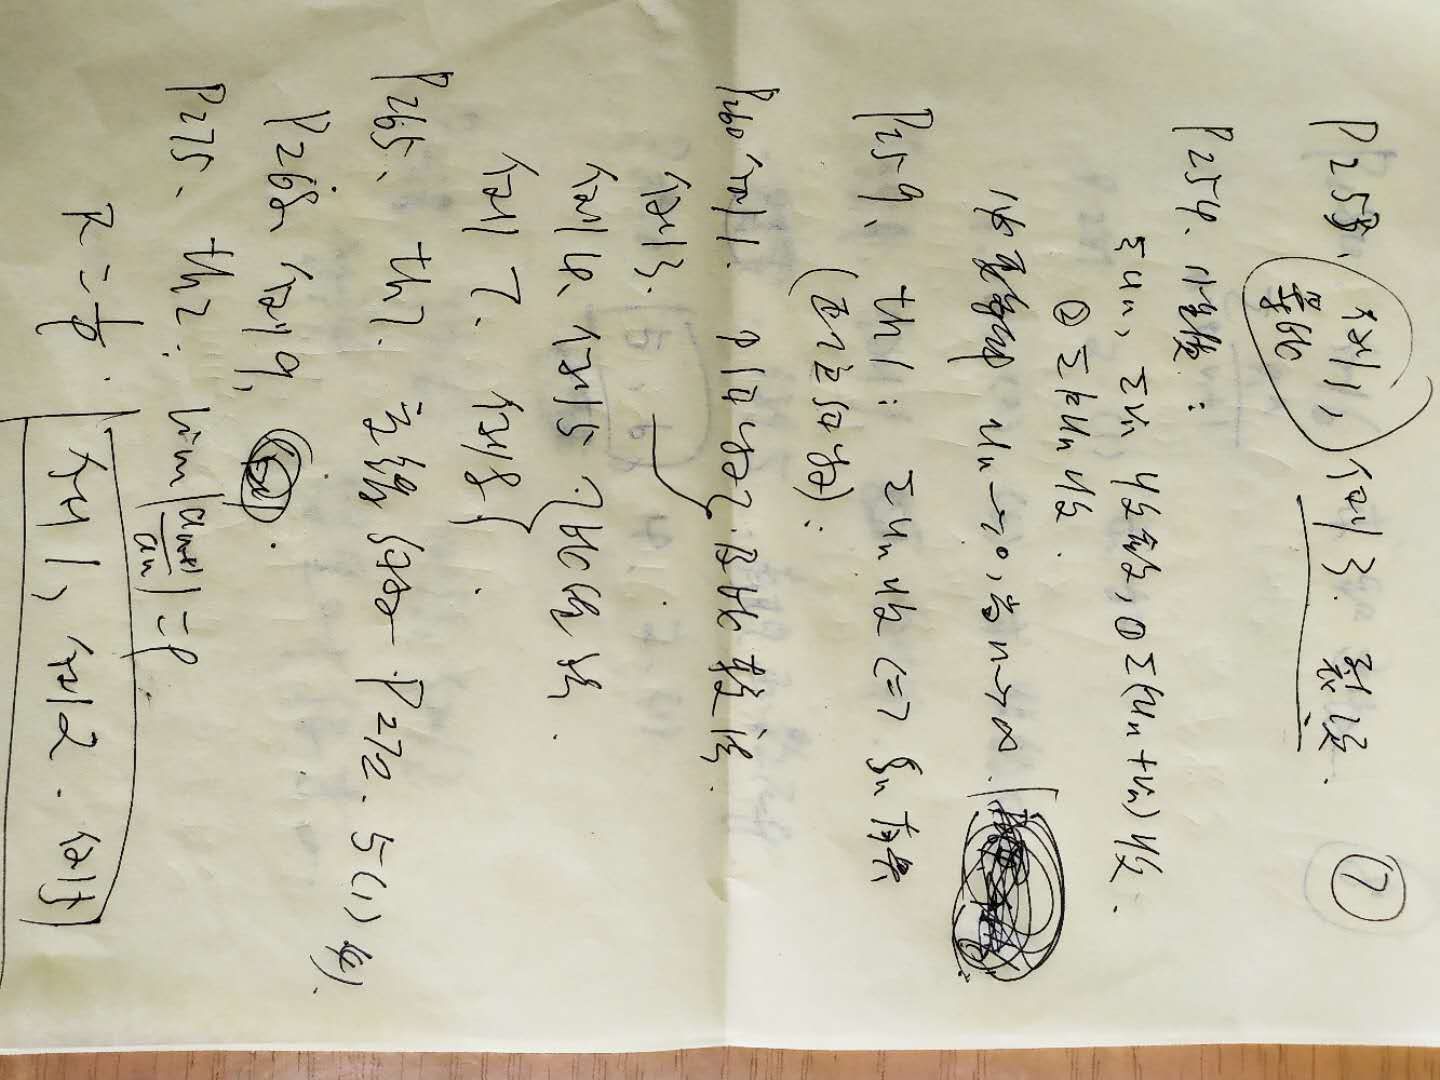 ⑦
P253、例1, 例3. 裂项.
等比
P254、性质:
Σun, Σvn 收敛, ① Σ(un+vn) 收敛.
② Σkun 收敛.
必要条件 un→0, 当 n→∞.
P259、th1: Σun 收敛 <=> Sn 有界
(正项级数):
P260 例1. P级数
例3. 比较法.
例4、例5 比值法.
例7. 例8.
P265、th7. P272. 5(1)
P268、例9,
P275、th2: lim|an+1/an|=ρ.
R=1/ρ.
例1、例2.